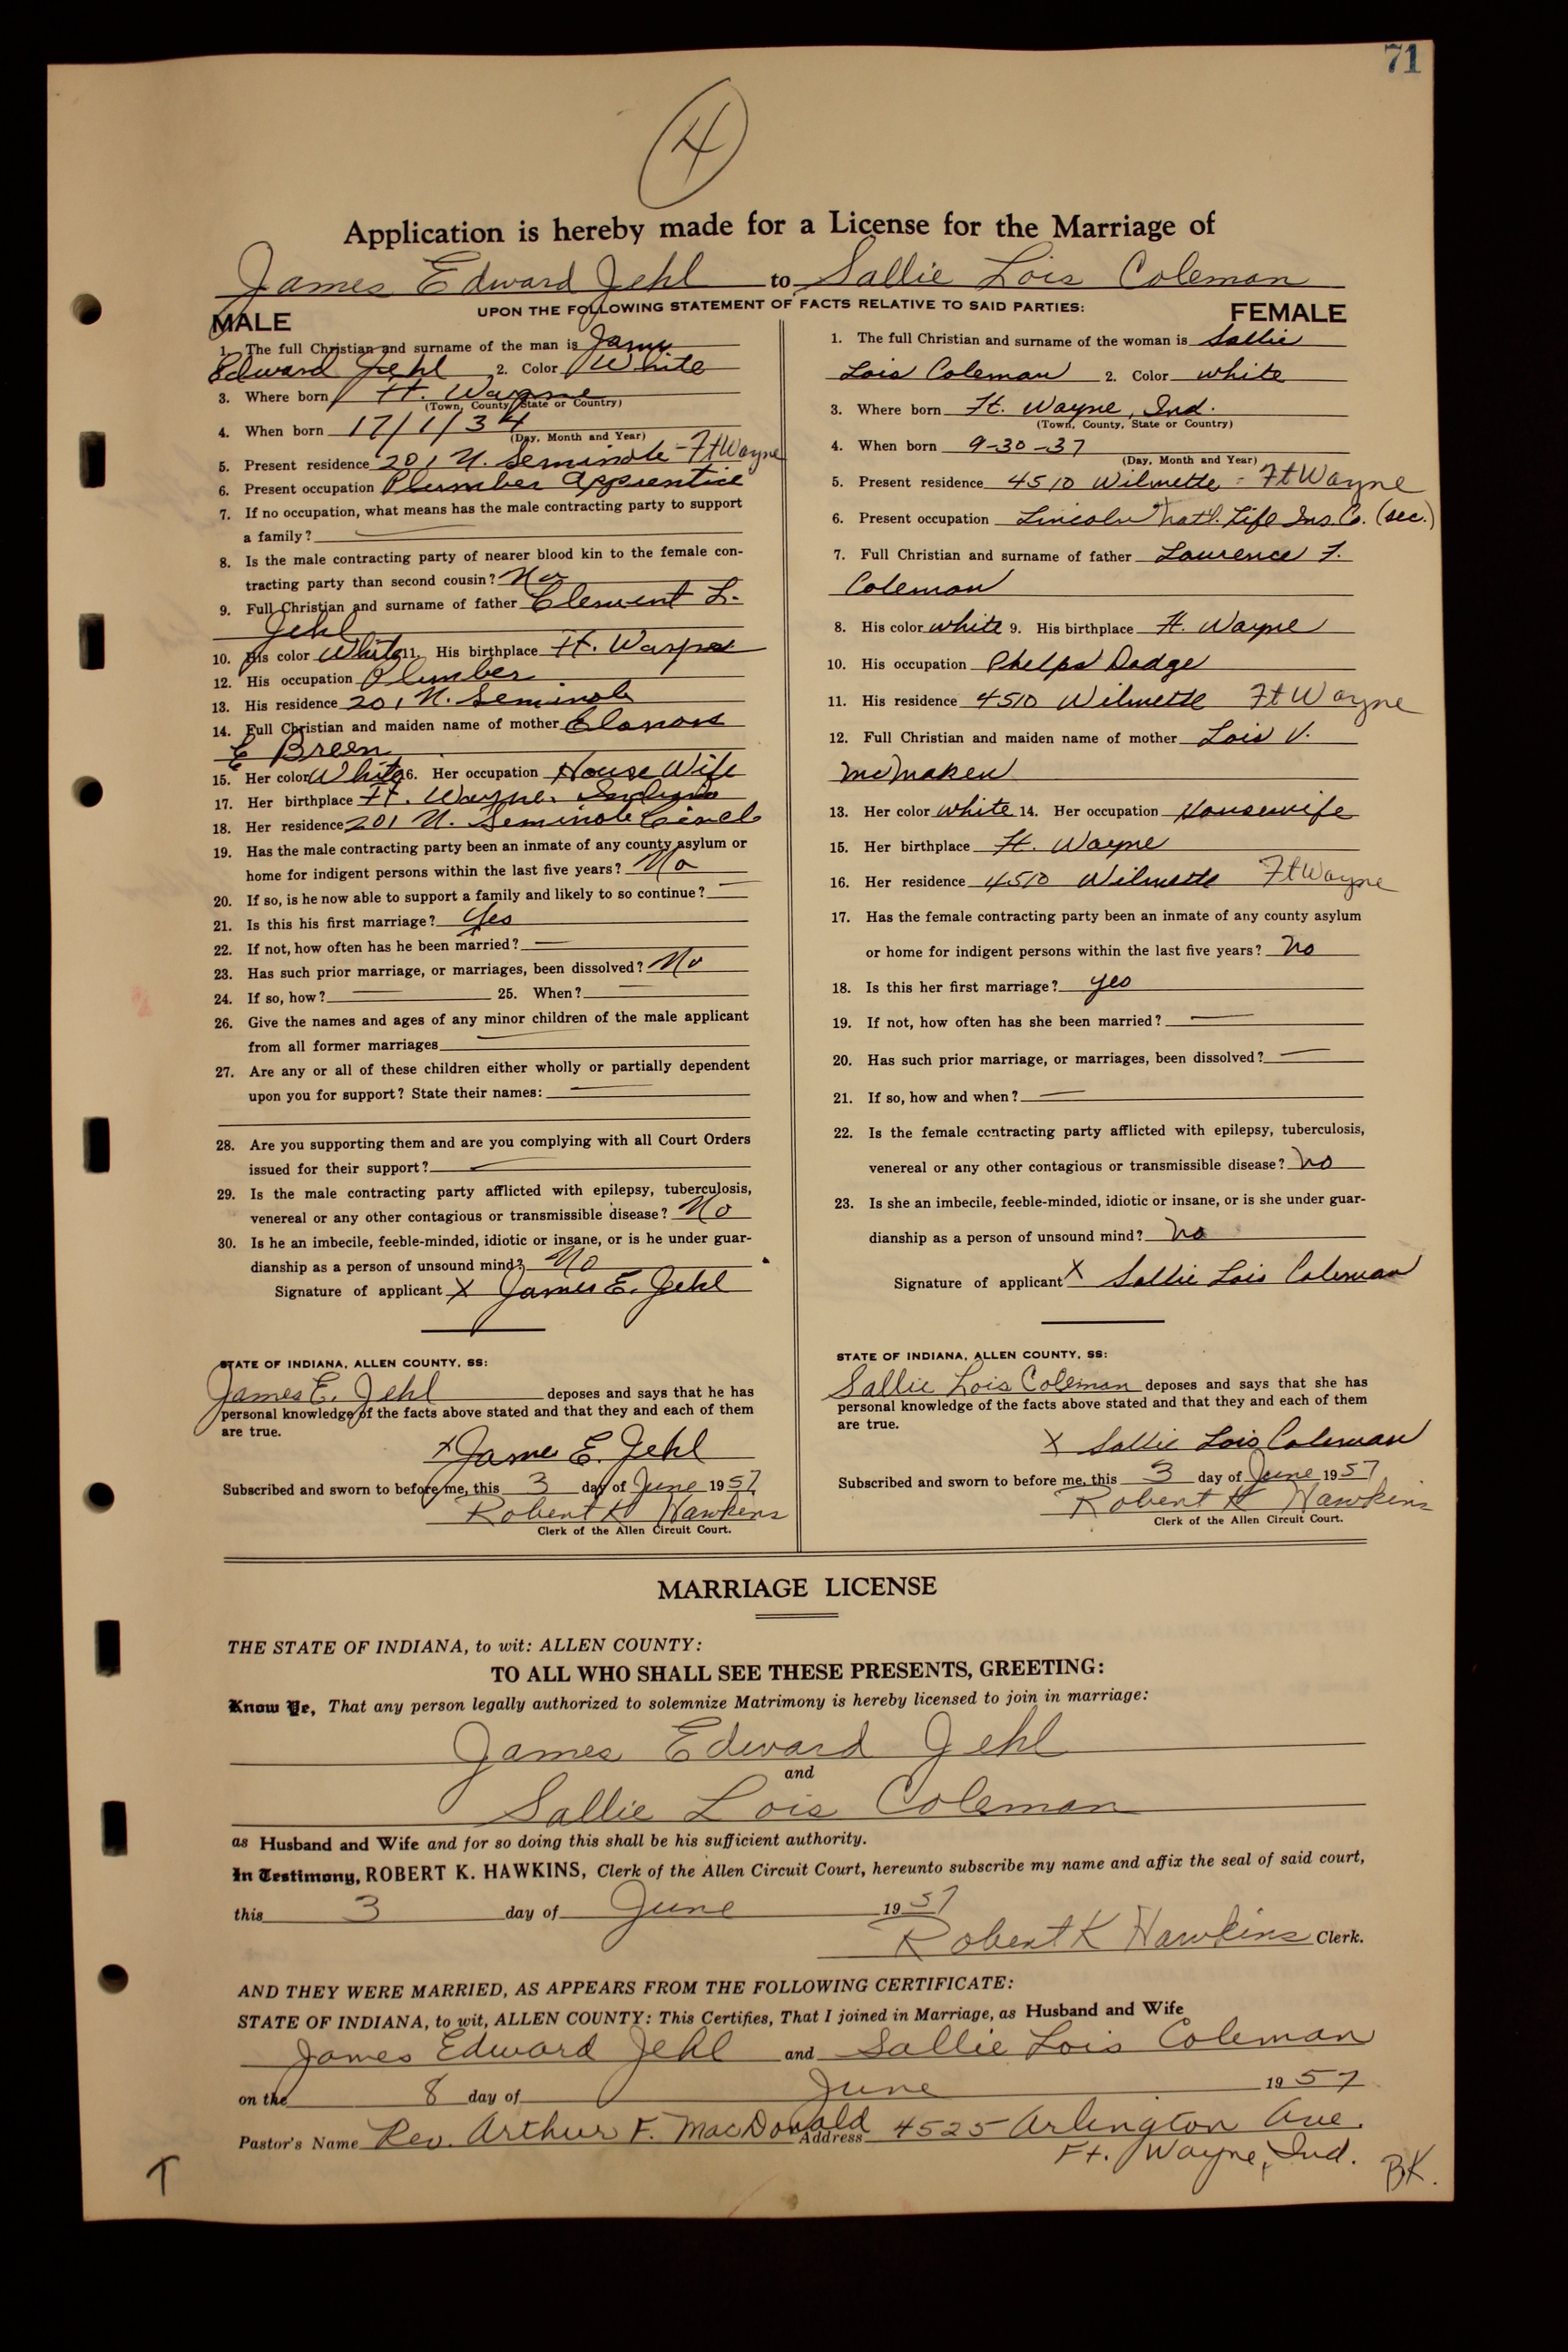 71
4
Application is hereby made for a License for the Marriage of
James Edward Jehl to Sallie Lois Coleman
UPON THE FOLLOWING STATEMENT OF FACTS RELATIVE TO SAID PARTIES:
MALE
1. The full Christian and surname of the man is James
Edward Jehl 2. Color White
3. Where born Ft. Wayne
(Town, County, State or Country)
4. When born 17/1/34
(Day, Month and Year)
5. Present residence 201 N. Seminole - Ft Wayne
6. Present occupation Plumber Apprentice
7. If no occupation, what means has the male contracting party to support
a family?
8. Is the male contracting party of nearer blood kin to the female con-
tracting party than second cousin? No
9. Full Christian and surname of father Clement L.
Jehl
10. His color White 11. His birthplace Ft. Wayne
12. His occupation Plumber
13. His residence 201 N. Seminole
14. Full Christian and maiden name of mother
E Breen
15. Her color White 16. Her occupation House Wife
17. Her birthplace Ft. Wayne, Indiana
18. Her residence 201 N. Seminole Circle
19. Has the male contracting party been an inmate of any county asylum or
home for indigent persons within the last five years? No
20. If so, is he now able to support a family and likely to so continue?
21. Is this his first marriage? Yes
22. If not, how often has he been married?
23. Has such prior marriage, or marriages, been dissolved? No
24. If so, how? 25. When?
26. Give the names and ages of any minor children of the male applicant
from all former marriages
27. Are any or all of these children either wholly or partially dependent
upon you for support? State their names:
28. Are you supporting them and are you complying with all Court Orders
issued for their support?
29. Is the male contracting party afflicted with epilepsy, tuberculosis,
venereal or any other contagious or transmissible disease? No
30. Is he an imbecile, feeble-minded, idiotic or insane, or is he under guar-
dianship as a person of unsound mind? No
Signature of applicant X James E. Jehl
STATE OF INDIANA, ALLEN COUNTY, SS:
James E. Jehl deposes and says that he has
personal knowledge of the facts above stated and that they and each of them
are true.
X James E. Jehl
Subscribed and sworn to before me, this 3 day of June 1957
Robert K Hawkins
Clerk of the Allen Circuit Court.
FEMALE
1. The full Christian and surname of the woman is Sallie
Lois Coleman 2. Color white
3. Where born Ft. Wayne, Ind.
(Town, County, State or Country)
4. When born 9-30-37
(Day, Month and Year)
5. Present residence 4510 Wilmette - Ft Wayne
6. Present occupation Lincoln Nat'l. Life Ins. Co. (sec.)
7. Full Christian and surname of father Laurence F.
Coleman
8. His color white 9. His birthplace Ft. Wayne
10. His occupation Phelps Dodge
11. His residence 4510 Wilmette Ft Wayne
12. Full Christian and maiden name of mother Lois V.
McMaken
13. Her color white 14. Her occupation Housewife
15. Her birthplace Ft. Wayne
16. Her residence 4510 Wilmette Ft Wayne
17. Has the female contracting party been an inmate of any county asylum
or home for indigent persons within the last five years? no
18. Is this her first marriage? yes
19. If not, how often has she been married?
20. Has such prior marriage, or marriages, been dissolved?
21. If so, how and when?
22. Is the female contracting party afflicted with epilepsy, tuberculosis,
venereal or any other contagious or transmissible disease? no
23. Is she an imbecile, feeble-minded, idiotic or insane, or is she under guar-
dianship as a person of unsound mind? no
Signature of applicant X Sallie Lois Coleman
STATE OF INDIANA, ALLEN COUNTY, SS:
Sallie Lois Coleman deposes and says that she has
personal knowledge of the facts above stated and that they and each of them
are true.
X Sallie Lois Coleman
Subscribed and sworn to before me, this 3 day of June 1957
Robert K Hawkins
Clerk of the Allen Circuit Court.
MARRIAGE LICENSE
THE STATE OF INDIANA, to wit: ALLEN COUNTY:
TO ALL WHO SHALL SEE THESE PRESENTS, GREETING:
Know Ye, That any person legally authorized to solemnize Matrimony is hereby licensed to join in marriage:
James Edward Jehl
and
Sallie Lois Coleman
as Husband and Wife and for so doing this shall be his sufficient authority.
In Testimony, ROBERT K. HAWKINS, Clerk of the Allen Circuit Court, hereunto subscribe my name and affix the seal of said court,
this 3 day of June 1957
Robert K Hawkins Clerk.
AND THEY WERE MARRIED, AS APPEARS FROM THE FOLLOWING CERTIFICATE:
STATE OF INDIANA, to wit, ALLEN COUNTY: This Certifies, That I joined in Marriage, as Husband and Wife
James Edward Jehl and Sallie Lois Coleman
on the 8 day of June 1957
Pastor's Name Rev. Arthur F. MacDonald Address 4525 Arlington Ave.
Ft. Wayne, Ind.
BK.